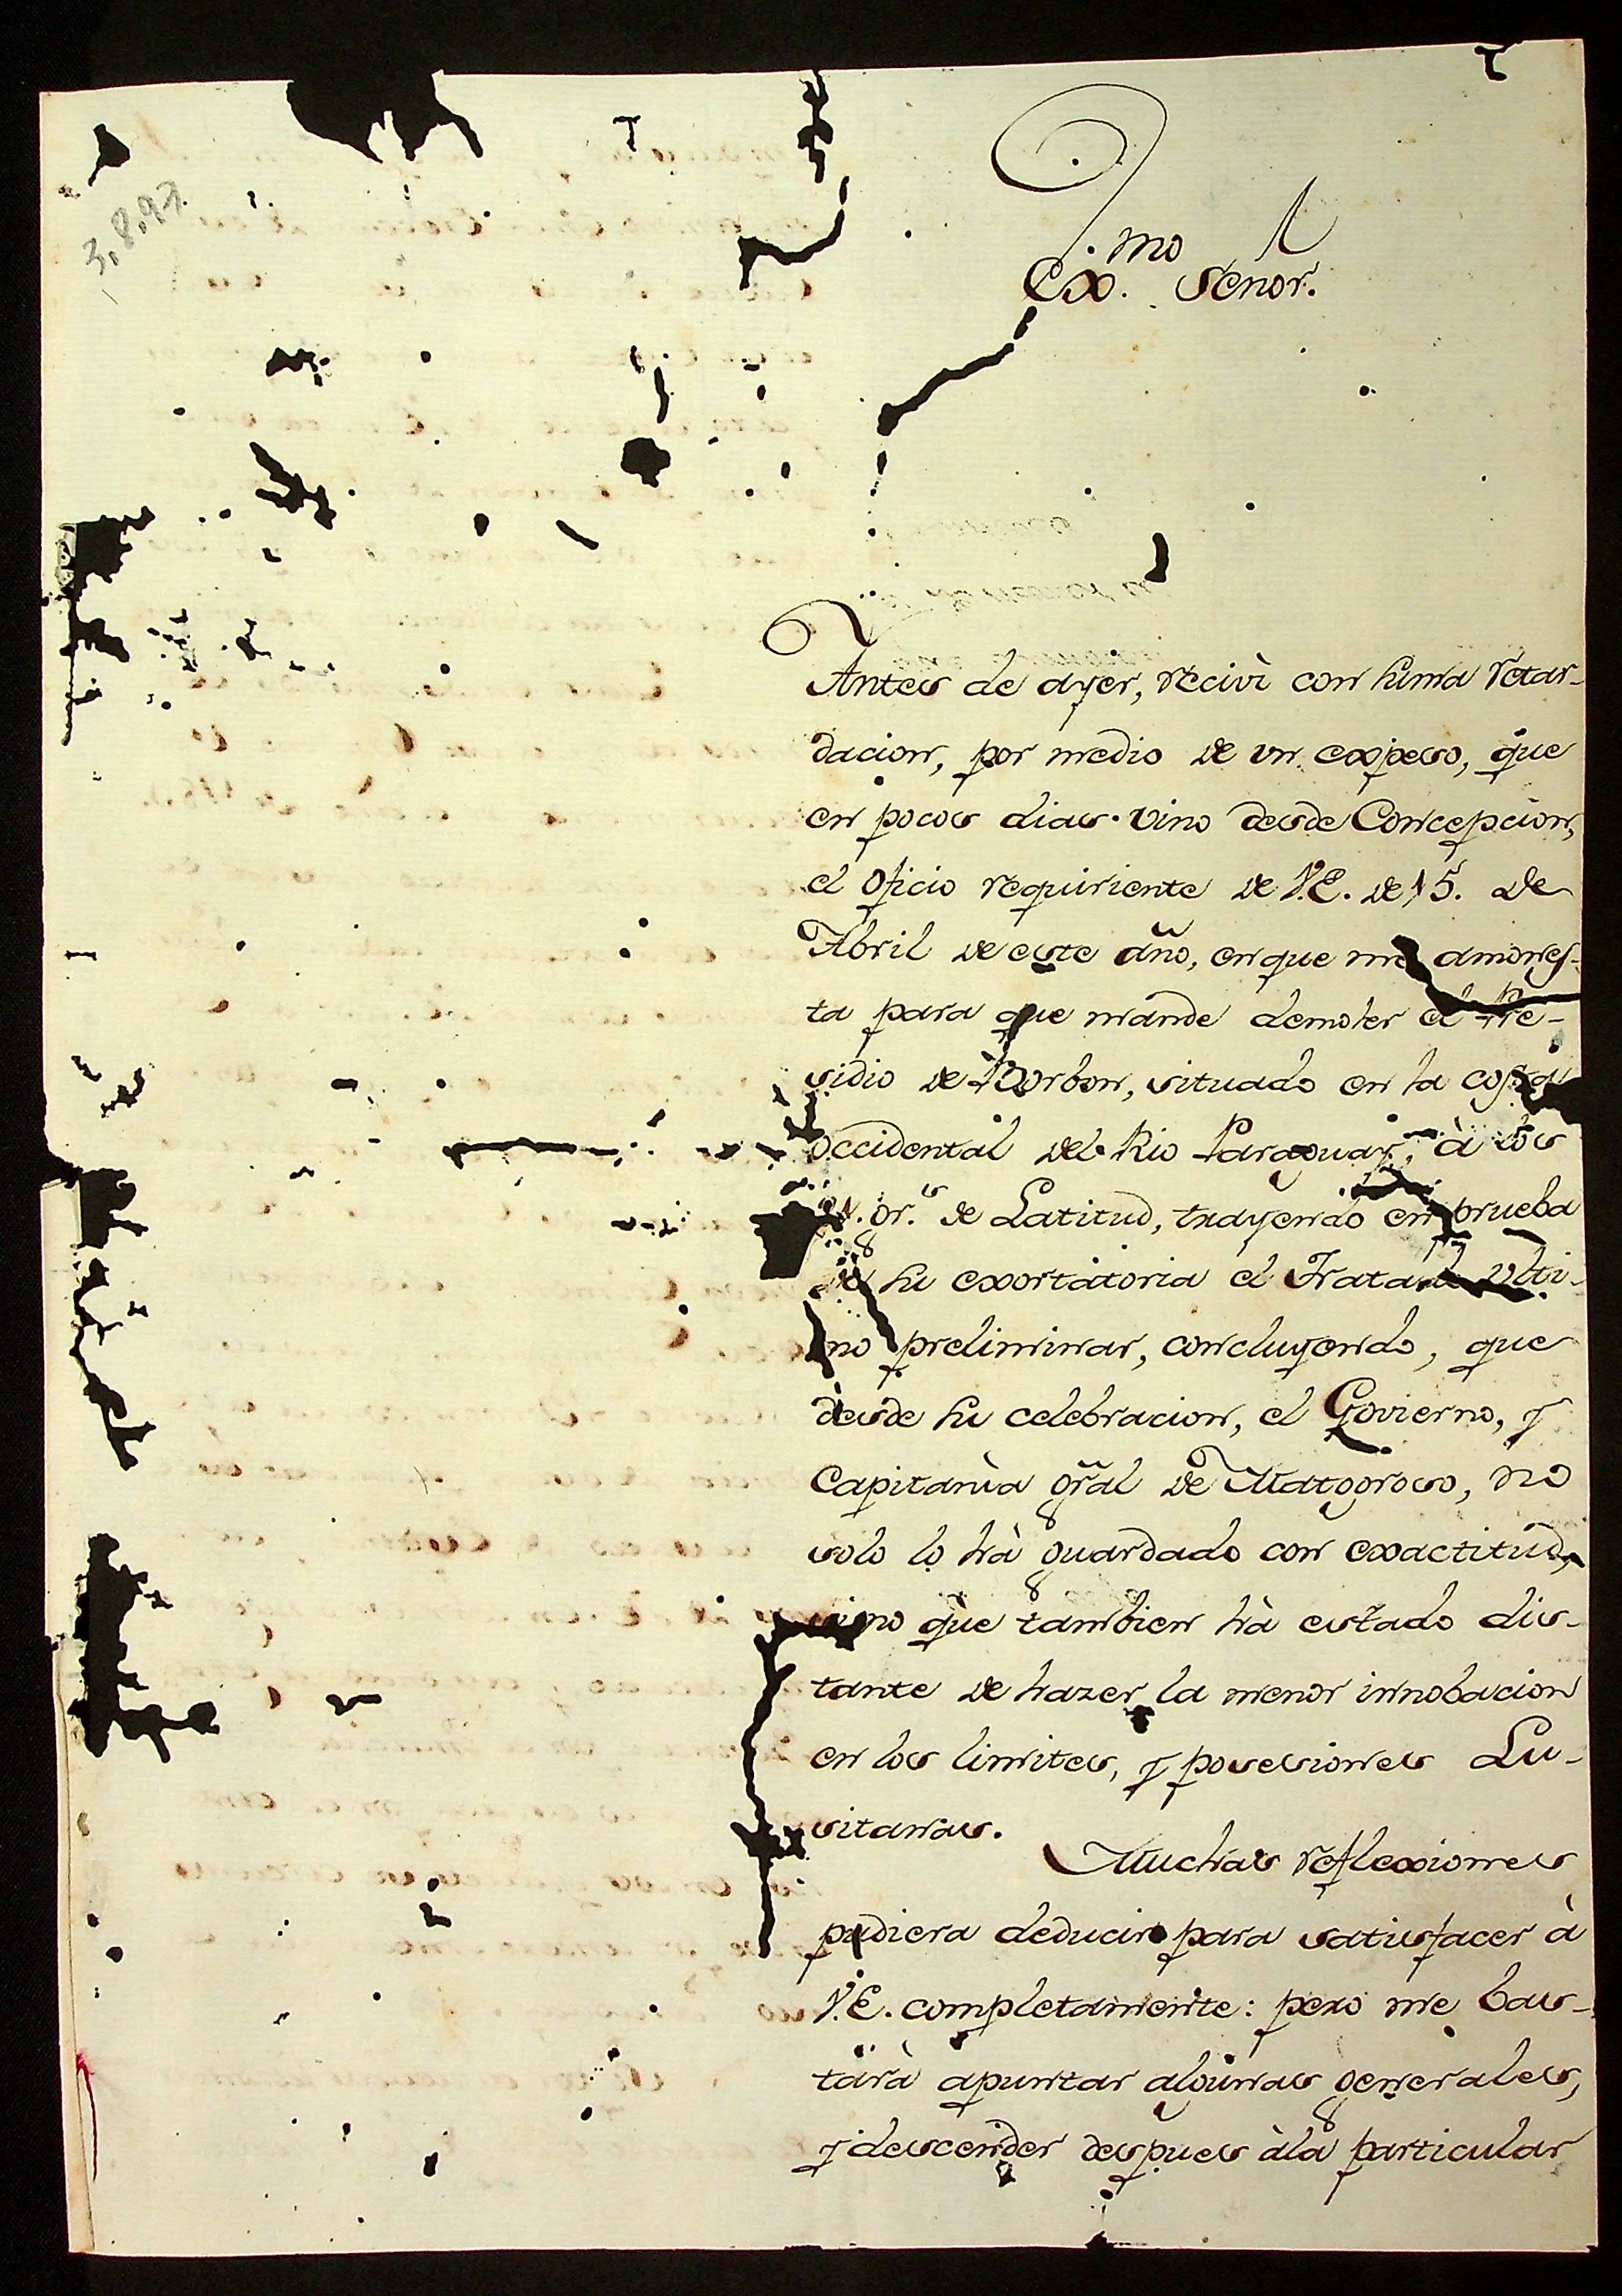 3,8,97.
Ex.mo Señor.
Antes de ayer, recivì con suma retar-
dacion, por medio de un expreso, que
en pocos dias vino desde Concepcion,
el oficio requiriente de V.E. de 15. de
Abril de este año, en que me amones-
ta para que mande demoler el Pre-
sidio de Borbon, situado en la costa
occidental del Rio Paraguay, à los
21. gr.s de Latitud, trayendo en prueba
de su exortatoria el Tratado ulti-
mo preliminar, concluyendo, que
desde su celebracion, el Govierno, y
Capitanìa gr̃al de Matogroso, no
solo lo hà guardado con exactitud,
sino que tambien hà estado dis-
tante de hazer la menor innobacion
en los limites, y posesiones Lu-
sitanas.
Muchas reflexiones
pudiera deducir para satisfacer à
V.E. completamente: pero me bas-
tarà apuntar algunas generales,
y descender despues àla particular